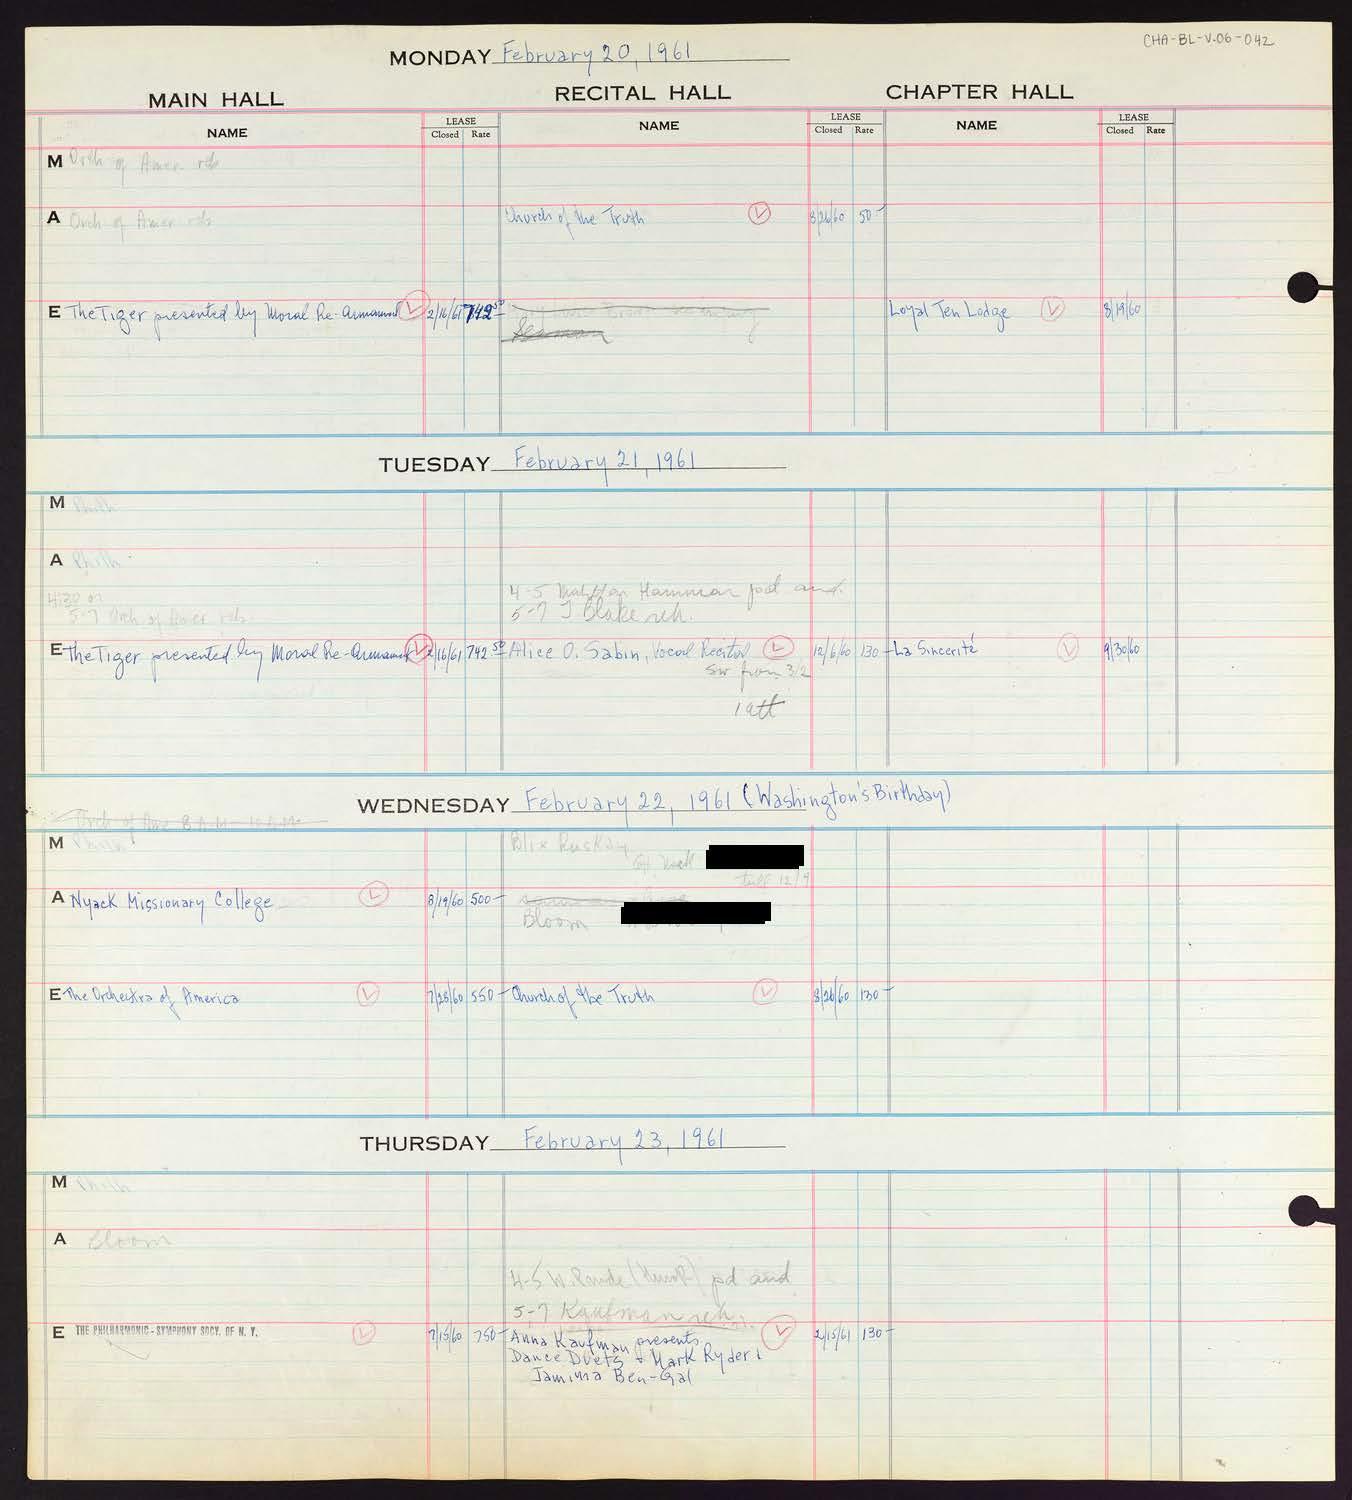 CHA-BL-V.06-042
MONDAY February 20, 1961
MAIN HALL RECITAL HALL CHAPTER HALL
NAME LEASE Closed Rate NAME LEASE Closed Rate NAME LEASE Closed Rate
M Orch of Amer reh
A Orch of Amer reh Church of the Truth 8/26/60 50-
E The Tiger presented by Moral Re-armament 2/16/61 742 50 Loyal Ten Lodge 8/19/60
Seaman
TUESDAY February 21, 1961
M Philh
A Philh
4:30 or 4-5 Hammar pd and
5-7 Orch of Amer reh 5-7 J Blake reh.
E The Tiger presented by Moral Re-armament 2/16/61 742 50 Alice O. Sabin, Vocal Recital 12/6/60 130- La Sincerité 9/30/60
Sw from 3/2
1 att
WEDNESDAY February 22, 1961 (Washington's Birthday)
Orch of Ame 8 A.M - 11 A.M
M Philh Blix Ruskay
12/9
A Nyack Missionary College 8/19/60 500-
Bloom
E The Orchestra of America 7/28/60 550- Church of the Truth 8/26/60 130-
THURSDAY February 23, 1961
M Philh
A Bloom
4-5 W. pd and
5-7 Kaufman reh.
E THE PHILHARMONIC-SYMPHONY SOCY. OF N. Y. 7/15/60 750- Anna Kaufman presents 2/15/61 130-
Dance Duets + Mark Ryder &
Jamima Ben-Gal